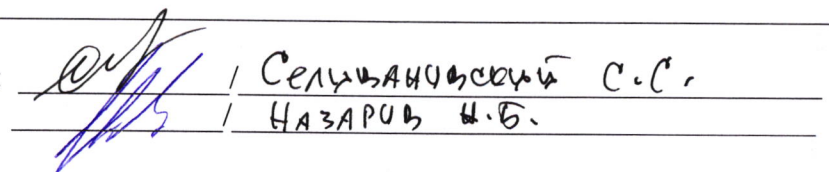 / Селивановский С.С.
/ Назаров Н.Б.